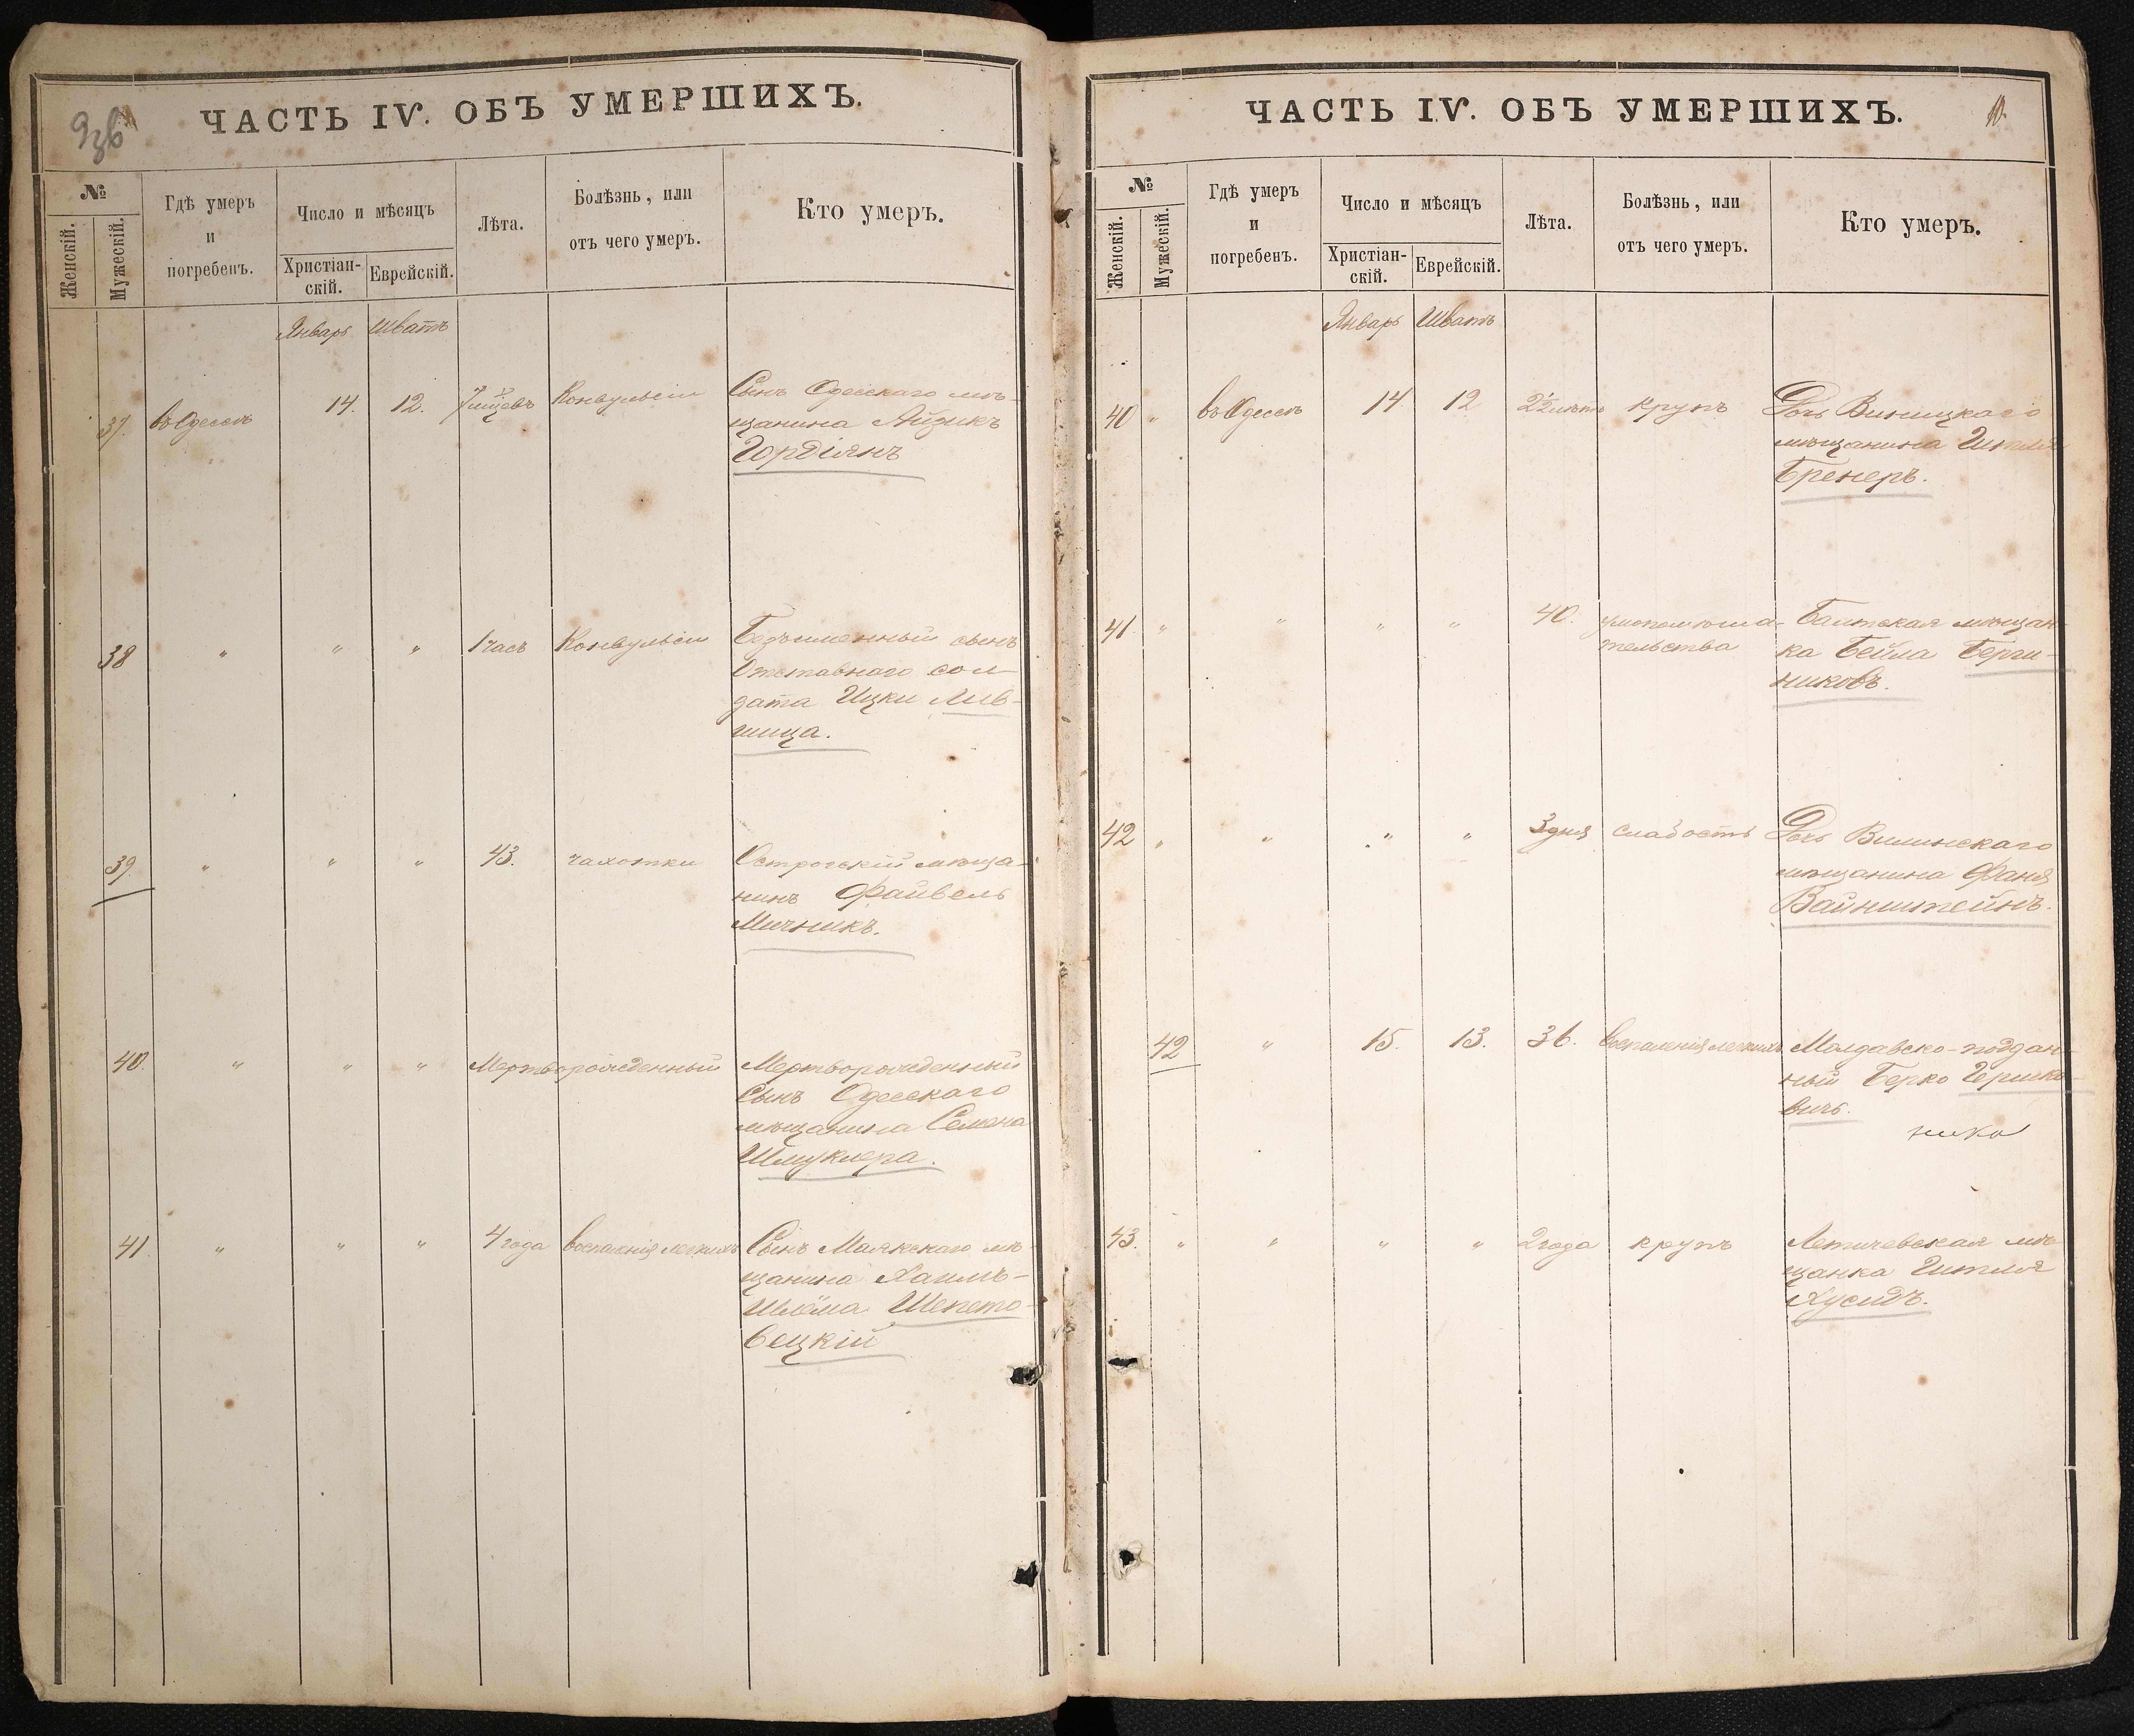 ЧАСТЬ IV. ОБЪ УМЕРШИХЪ.
№
Женскій.
Мужескій.
Гдѣ умеръ
и
погребенъ.
Число и мѣсяцъ
Христіан-
скій.
Еврейскій.
Лѣта.
Болѣзнь, или
отъ чего умеръ.
Кто умеръ.
Январь Шватъ
37. въ Одессѣ 14. 12. Конвульсіи Сынъ Одесскаго мѣ-
щанина Айзикъ
Гордіянъ
38 " " " 1 часъ Конвульсіи Безъименный сынъ
Отставнаго сол-
дата Ицки Лив-
шица.
39. " " " 43. чахотки Острогскій мѣща-
нинъ Файвель
Мичникъ.
40. " " " Мертворожденный Мертворожденный
сынъ Одесскаго
мѣщанина Семена
Шмуклера.
41. " " " 4 года воспаленія легкихъ Сынъ Маякскаго мѣ-
щанина Хаимъ-
Шлёма Шепето-
вецкій
ЧАСТЬ IV. ОБЪ УМЕРШИХЪ. 10.
№
Женскій.
Мужескій.
Гдѣ умеръ
и
погребенъ.
Число и мѣсяцъ
Христіан-
скій.
Еврейскій.
Лѣта.
Болѣзнь, или
отъ чего умеръ.
Кто умеръ.
Январь Шватъ
40 " въ Одессѣ 14 12 2½ лѣтъ крупъ Дочь Виницкаго
мѣщанина Гитля
Бренеръ.
41 " " " " 40. умопомѣша- Балтская мѣщан-
тельства ка Бейла Берги-
никовъ.
42 " " " " 3 дня слабость Дочь Вилинскаго
мѣщанина Фаня
Вайнштейнъ.
42 " 15. 13. 36. воспаленія легкихъ Молдавско-поддан-
ный Берко Гершко-
вичъ.
43. " " " " 2 года крупъ Летичевская мѣ-
щанка Гитля
Хусидъ.